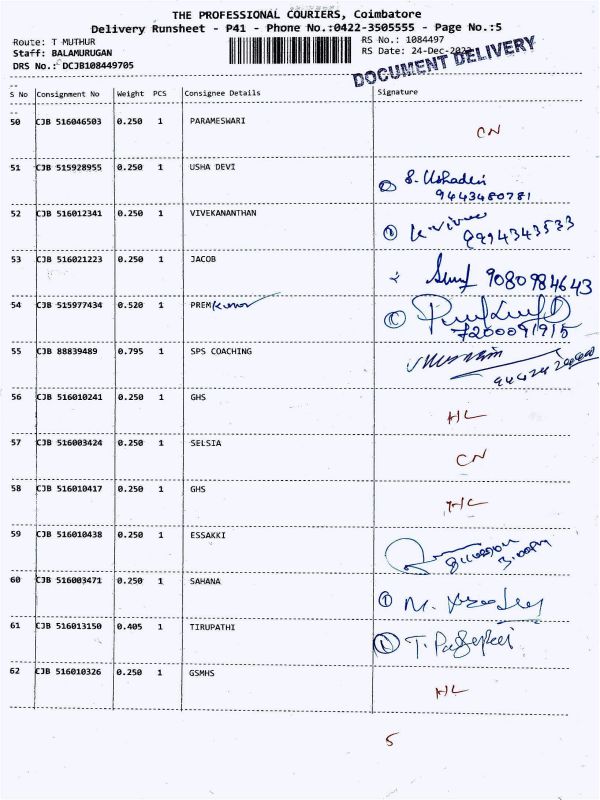 THE PROFESSIONAL COURIERS, Coimbatore
Delivery Runsheet - P41 - Phone No.:0422-3505555 - Page No.:5
Route: T MUTHUR RS No.: 1084497
Staff: BALAMURUGAN RS Date: 24-Dec-2022
DRS No.: DCJB108449705
DOCUMENT DELIVERY
S No Consignment No Weight PCS Consignee Details Signature
50 CJB 516046503 0.250 1 PARAMESWARI CN
51 CJB 515928955 0.250 1 USHA DEVI S. Ushadevi
9443480781
52 CJB 516012341 0.250 1 VIVEKANANTHAN
9994343533
53 CJB 516021223 0.250 1 JACOB 9080984643
54 CJB 515977434 0.520 1 PREM Kumar
7200091915
55 CJB 88839489 0.795 1 SPS COACHING
56 CJB 516010241 0.250 1 GHS HL
57 CJB 516003424 0.250 1 SELSIA CN
58 CJB 516010417 0.250 1 GHS HL
59 CJB 516010438 0.250 1 ESSAKKI
3:00pm
60 CJB 516003471 0.250 1 SAHANA M.
61 CJB 516013150 0.405 1 TIRUPATHI T.
62 CJB 516010326 0.250 1 GSMHS HL
5